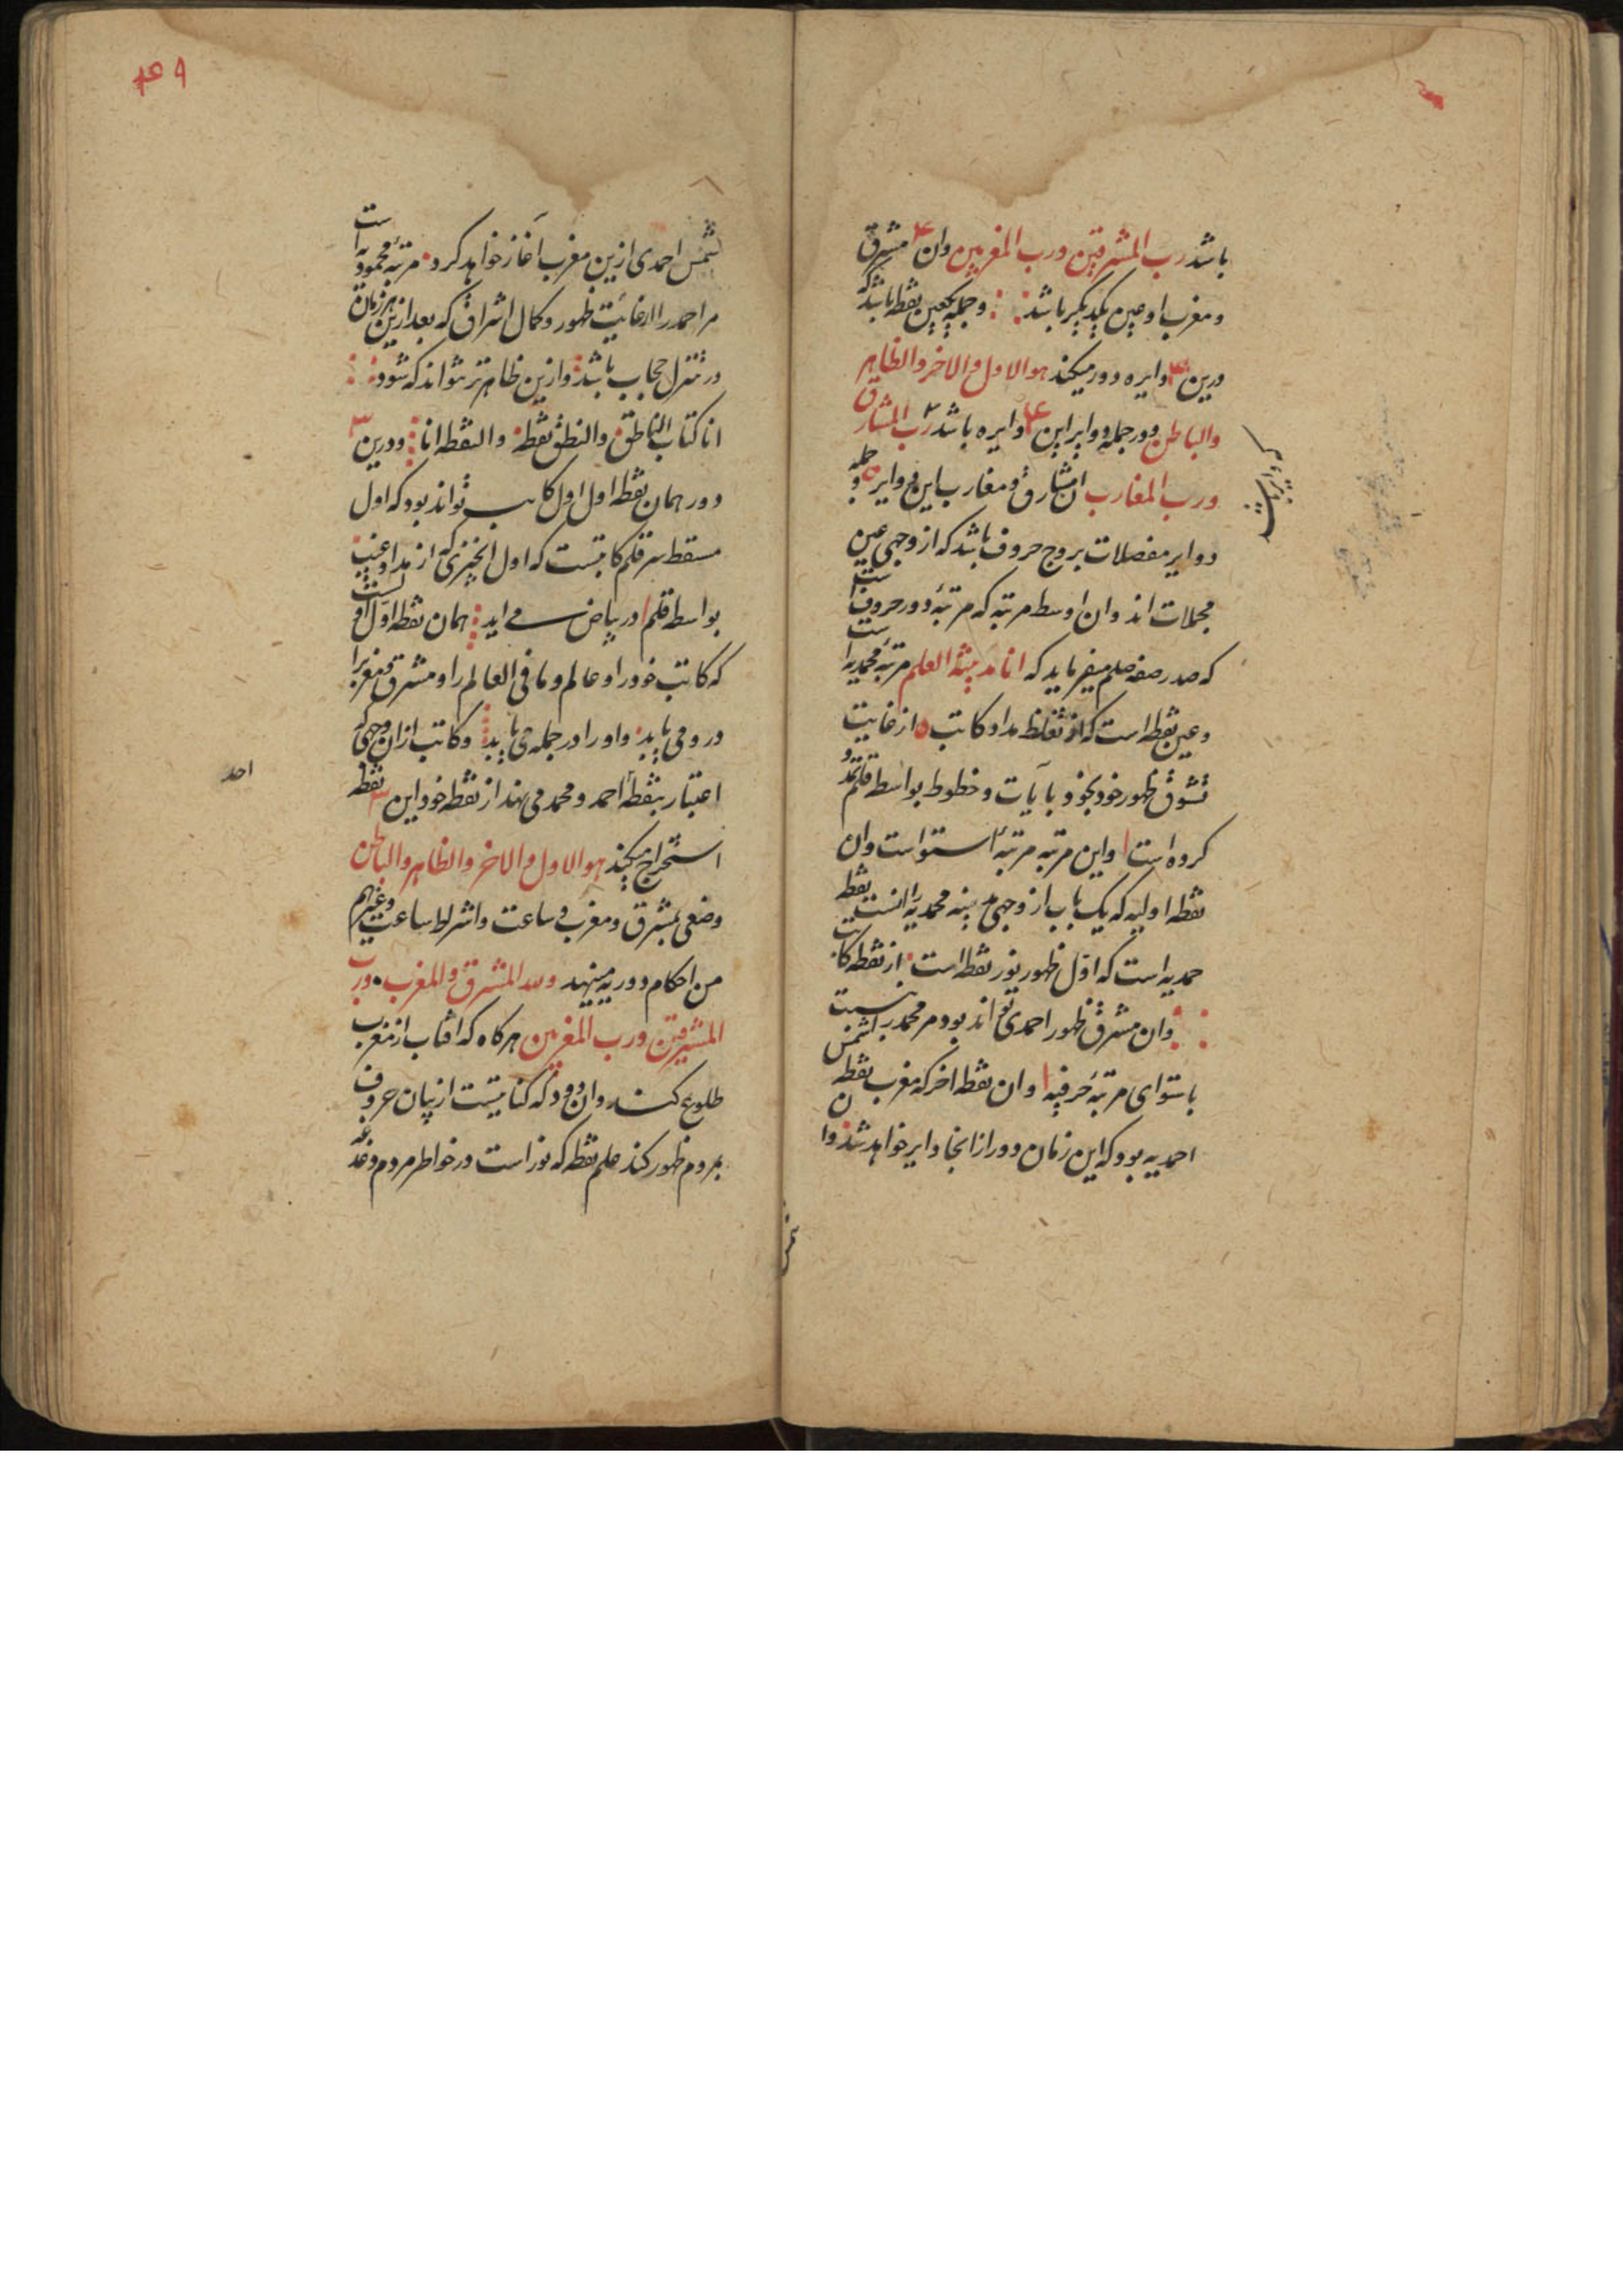 باشد رب المشرقین ورب المغربین وان ۴ مشرق
ومغرب او عین یکدیگر باشد وجمله یکعین نقطه باشد که
درین ۳ دایره دور میکند هو الاول والاخر والظاهر
والباطن ودر جمله دوایر این ۴ دایره باشد رب المشارق
ورب المغارب ان مشارق ومغارب این دوایر وجمله
دوایر مفصلات بروج حروف باشد که از وجهی عین
مجملات اند وان اوسط مرتبه که مرتبهٔ دور حروف است
که صدر صفه صلم میفرماید که انا مدینة العلم مرتبهٔ محمدیه است
وعین نقطه است که از مداد کاتب از غایت
تشوق ظهور خود بخود بایات وخطوط بواسطه قلم
کرده است واین مرتبه مرتبهٔ استواست وان
نقطه اولیه که یک باب از وجهی محمدیه را انست نقطه
حمدیه است که اول ظهور نور نقطه است از نقطه کاتب
وان مشرق ظهور احمدی تواند بود مر محمد را شمس
باستوای مرتبهٔ حرفیه وان نقطه اخر که مغرب نقطه
احمدیه بود که این زمان دور از انجا دایر خواهد شد وان
شمس احمدی ازین مغرب آغاز خواهد کرد مرتبهٔ محمودیه است
مر احمد را از غایت ظهور وکمال اشراق که بعد ازین هر زمان
در تنزل حجاب باشد وازین ظاهرتر نتواند که شود
انا کتاب الناطق والنطق نقطه والنقطه انا ودرین ۳
دور همان نقطه اول اول کاتب تواند بود که اول
مسقط سر قلم کاتبست که اول انچیزی که از مداد غیب
بواسطه قلم در بیاض می اید همان نقطه اول اوست
که کاتب خود را وعالم وما فی العالم را ومشرق ومغرب را
درو می یابد واورا در جمله می یابد وکاتب ازان وجهی که
اعتبار بنقطهٔ احمد ومحمد می نهد از نقطه خود این ۳ نقطه
استخراج میکند هو الاول والاخر والظاهر والباطن
وضعی بمشرق ومغرب وساعت واشراط ساعت وغیرهم
من احکام دوریه مینهد ولله المشرق والمغرب ورب
المشرقین ورب المغربین هرگاه که افتاب از مغرب
طلوع کند وان دود که کنایتست از بیان حروف
بمردم ظهور کند علم نقطه که نوراست در خواطر مردم
احد